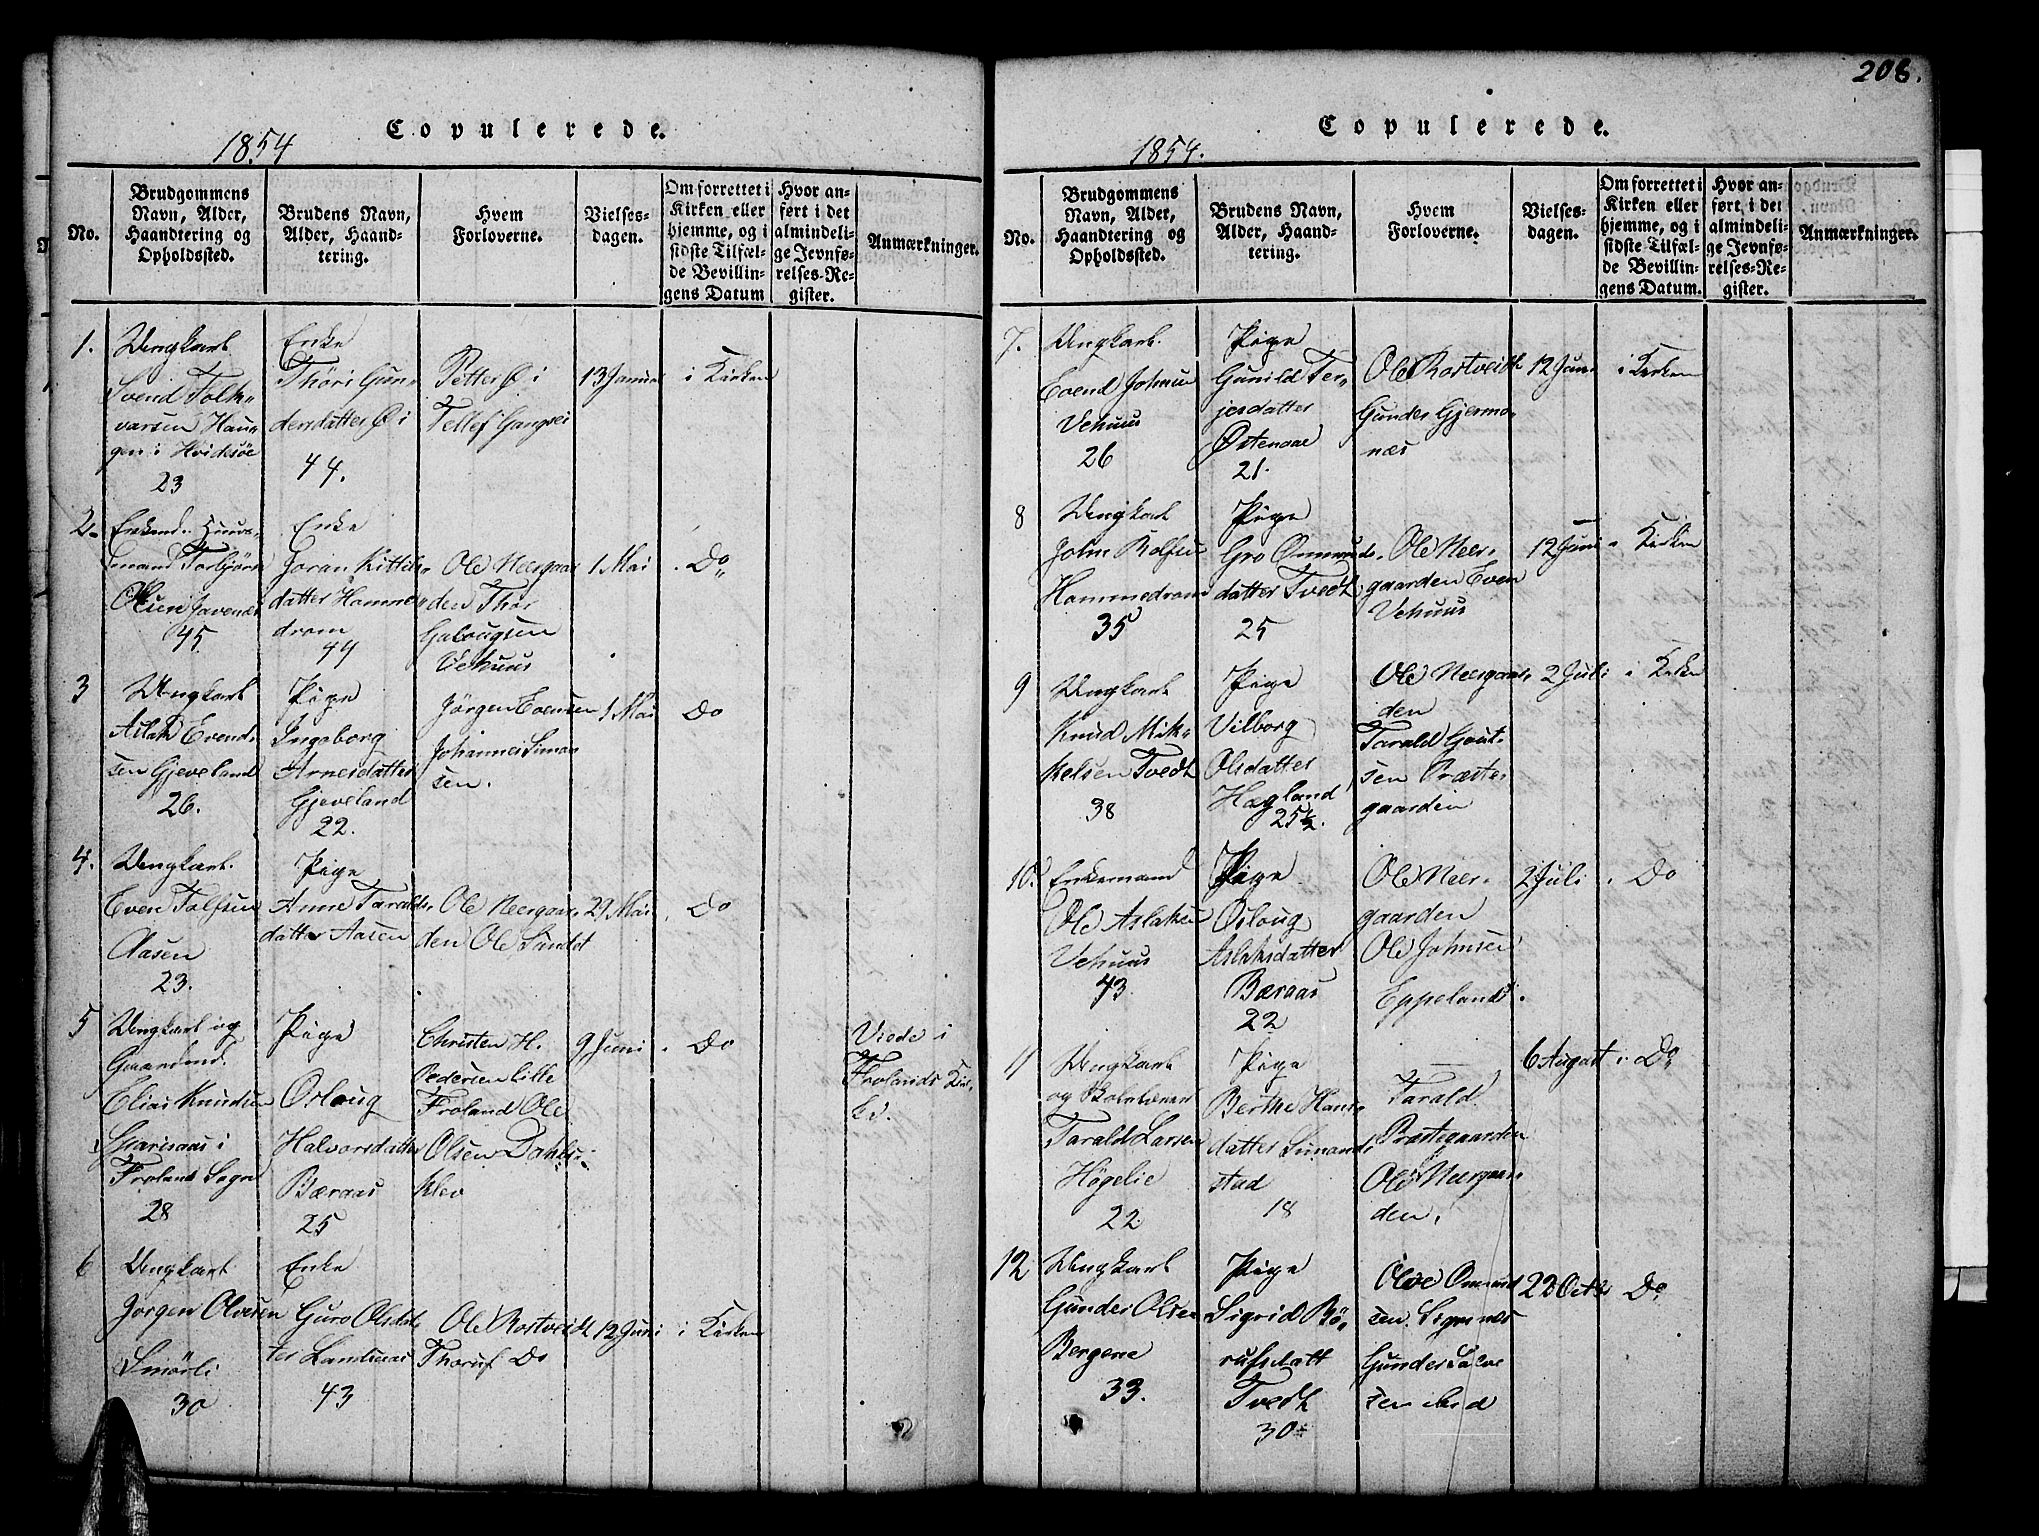 208.
Copulerede.
1854
No.
Brudgommens
Navn, Alder,
Haandtering og
Opholdssted.
Brudens Navn,
Alder, Haand-
tering.
Hvem
Forloverne.
Vielses-
dagen.
Om forrettet i
Kirken eller
hjemme, og i
sidste Tilfæl-
de Bevillin-
gens Datum
Hvor an-
ført i det
almindeli-
ge Jevnfø-
relses-Re-
gister.
Anmærkninger.
1.
Ungkarl
Svend Folk-
varsen Hau-
gen i Hvidesøe
23
Enke
Thöri Gun-
dersdatter Ø i
44.
Petter Ø i
Tellef
13 Januar
i Kirken
2.
Enkemd. Huus-
mand Torbjörn
Olsen
45
Enke
Joran Kittils-
datter Homme-
drom
44
Ole Neergaar-
den Thor
Vehuus
1 Mai
Do
3
Ungkarl
Aslak Evend-
sen Gjeveland
26.
Pige
Ingeborg
Arnesdatter
Gjeveland
22.
Jørgen Evensen
Johannes Simon
sen.
1 Mai
Do
4.
Ungkarl.
Even Tolfsen
Aasen
23.
Pige
Anne Taralds-
datter Aasen
Ole Neergaar-
den Ole Sundet
29 Mai
Do
5
Ungkarl og
Gaardmd.
Elias Knudsen
i
Froland Sogn
28
Pige
Osloug
Halvorsdatter
Bæraas
25
Christen H.
Pedersen Lille
Froland Ole
Olsen Dahls-
klev
9 Juni
Do
Viede i
Frolands Kir-
ke.
6
Ungkarl
Jørgen Olvesen
Smörli
30
Enke
Guro Olsdat
ter Landsaas
43
Ole Rostveidt
Thoruf Do
12 Juni
i Kirken
Copulerede.
1854.
No.
Brudgommens
Navn, Alder,
Haandtering og
Opholdssted.
Brudens Navn,
Alder, Haand-
tering.
Hvem
Forloverne.
Vielses-
dagen.
Om forrettet i
Kirken eller
hjemme, og i
sidste Tilfæl-
de Bevillin-
gens Datum.
Hvor an-
ført, i det
almindeli-
ge Jevnfø-
relses-Re-
gister.
Anmærkninger.
7.
Ungkarl.
Evend Johnsen
Vehuus
26
Pige
Gunild Ter-
jesdatter
Østenaae
21.
Ole Rostveidt
Gunder Gjermo-
næs
12 Juni
i Kirken
8
Ungkarl
John Rolfsen
Hommedrom
35
Pige
Gro Omunds-
datter Tvedt
25
Ole Neer-
gaarden Even
Vehuus
12 Juni
Kirken
9
Ungkarl
Knud Mik-
kelsen Tvedt
38
Pige
Vilborg
Olsdatter
Hægland
25½.
Ole Neergaar-
den
Tarald Gout-
sen Præste
gaarden
2 Juli
i Kirken
10.
Enkemand
Ole Aslaksen
Vehuus
43
Pige
Osloug
Aslaksdatter
Bæraas
22
Ole Neer-
gaarden
Ole Johnsen
Eppeland.
2 Juli
Do
11
Ungkarl
og Skolelærer
Tarald Larsen
Högelie
22
Pige
Berthe Hans-
datter Simond-
stad
18
Tarald
Præstegaarden
Ole Neergaar
den.
6 August
i Do
12
Ungkarl
Gunder Olsen
Bergene
33.
Pige
Sigrid Bö-
rufsdatt
Tvedt
30
Olve Omund
sen. Sigenæs
Gunder Salve
sen ibid
22 Octr
Do